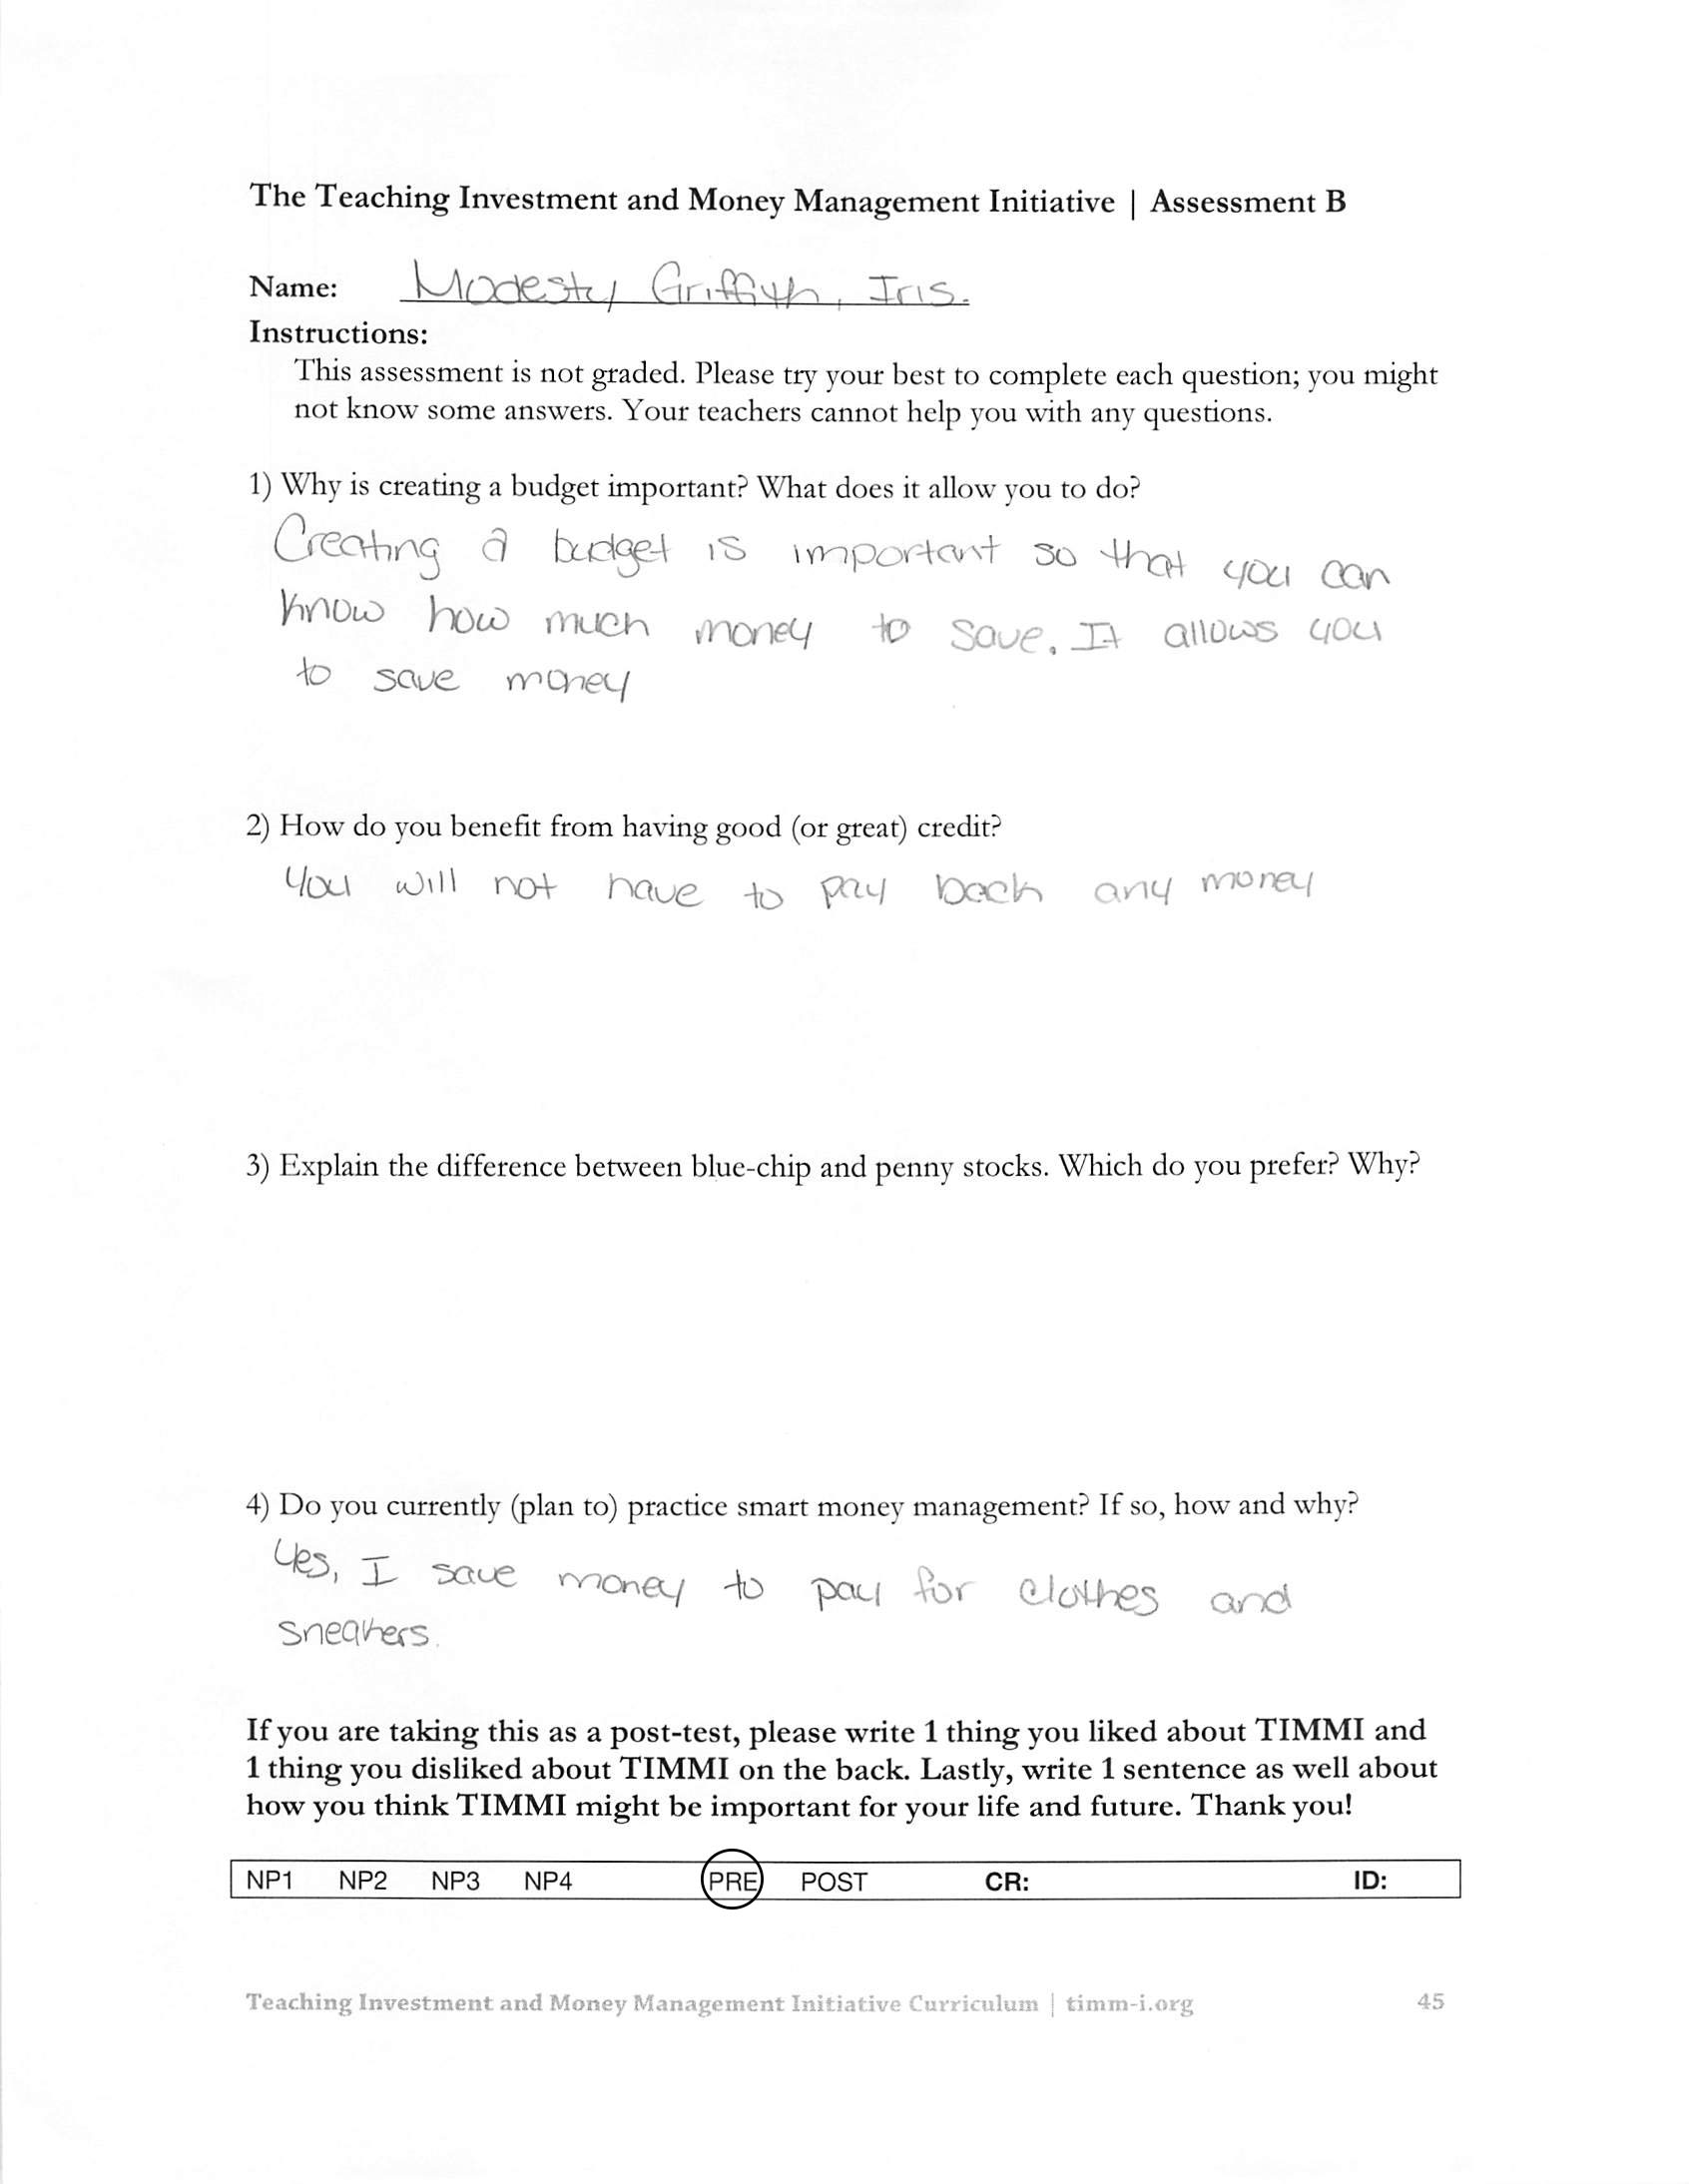 The Teaching Investment and Money Management Initiative | Assessment B
Name: Modesty Griffith, Iris.
Instructions:
This assessment is not graded. Please try your best to complete each question; you might
not know some answers. Your teachers cannot help you with any questions.
1) Why is creating a budget important? What does it allow you to do?
Creating a budget is important so that you can
know how much money to save. It allows you
to save money
2) How do you benefit from having good (or great) credit?
You will not have to pay back any money
3) Explain the difference between blue-chip and penny stocks. Which do you prefer? Why?
4) Do you currently (plan to) practice smart money management? If so, how and why?
Yes, I save money to pay for clothes and
sneakers.
If you are taking this as a post-test, please write 1 thing you liked about TIMMI and
1 thing you disliked about TIMMI on the back. Lastly, write 1 sentence as well about
how you think TIMMI might be important for your life and future. Thank you!
NP1 NP2 NP3 NP4 PRE POST CR: ID:
Teaching Investment and Money Management Initiative Curriculum | timm-i.org 45